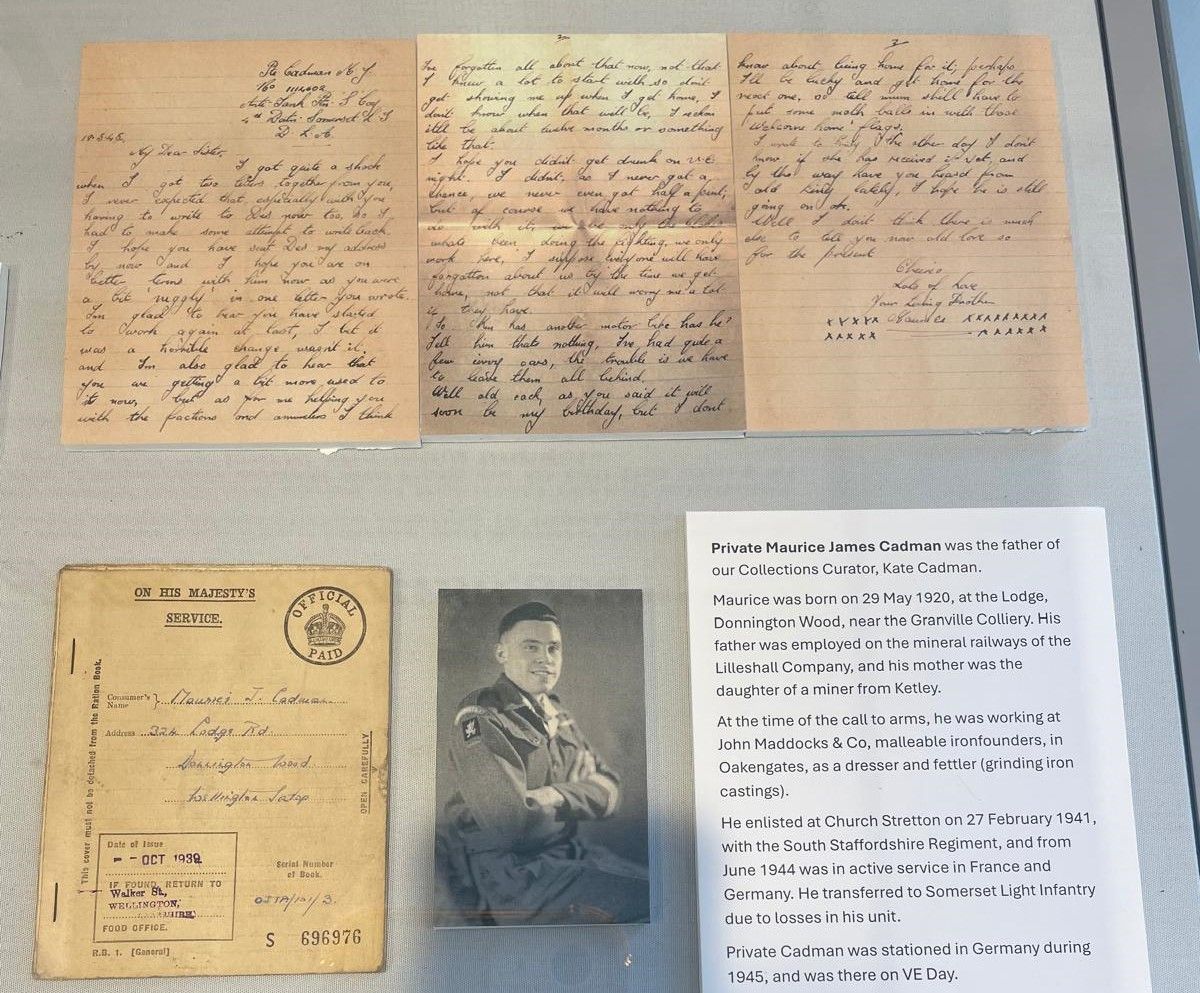 Pte Cadman M. J.
No
Anti-Tank Ptn. S Coy
4th Battn. Somerset L I
B. L. A.
18.5.45.
My Dear Sister,
I got quite a shock
when I got two letters together from you,
I never expected that, especially with you
having to write to Des now too, so I
had to make some attempt to write back.
I hope you have sent Des my address
by now and I hope you are on
better terms with him now as you were
a bit 'niggly' in one letter you wrote.
I'm glad to hear you have started
to work again at last, I bet it
was a horrible change wasnt it,
and I'm also glad to hear that
you are getting a bit more used to
it now, but as for me helping you
with the fractions and I think
2
I've forgotten all about that now, not that
I knew a lot to start with so don't
get showing me up when I get home, I
don't know when that will be, I reckon
it'll be about twelve months or something
like that.
I hope you didn't get drunk on VE
night. I didn't, as I never got a
chance, we never even got half a pint,
but of course we have nothing to
do with it, we're only the
whats been doing the fighting, we only
work here, I suppose everyone will have
forgotten about us by the time we get
home, not that it will worry me a lot
if they have.
So has another motor bike has he?
Tell him thats nothing, I've had quite a
few cars, the trouble is we have
to leave them all behind.
Well old , as you said it will
soon be my birthday, but I dont
3
know about being home for it; perhaps
I'll be lucky and get home for the
next one, so tell mum she'll have to
put some moth balls in with those
'Welcome home' flags.
I wrote to the other day I don't
know if she has received it yet, and
by the way have you heard from
old lately, I hope he is still
going on ok.
Well I dont think there is much
else to tell you now old love so
for the present
Cheerio
Lots of love
Your Loving Brother
xxxxx Maurice xxxxxxxxx
xxxxx xxxxxx
ON HIS MAJESTY'S
SERVICE.
OFFICIAL
PAID
This cover must not be detached from the Ration Book.
Consumer's Name } Maurice J. Cadman
Address 324 Lodge Rd
Donnington Wood
Wellington Salop
OPEN CAREFULLY
Date of Issue
- - OCT 1939
IF FOUND, RETURN TO
Walker St.,
WELLINGTON,
FOOD OFFICE.
Serial Number
of Book.
R.B. 1. [General]
S 696976
Private Maurice James Cadman was the father of
our Collections Curator, Kate Cadman.
Maurice was born on 29 May 1920, at the Lodge,
Donnington Wood, near the Granville Colliery. His
father was employed on the mineral railways of the
Lilleshall Company, and his mother was the
daughter of a miner from Ketley.
At the time of the call to arms, he was working at
John Maddocks & Co, malleable ironfounders, in
Oakengates, as a dresser and fettler (grinding iron
castings).
He enlisted at Church Stretton on 27 February 1941,
with the South Staffordshire Regiment, and from
June 1944 was in active service in France and
Germany. He transferred to Somerset Light Infantry
due to losses in his unit.
Private Cadman was stationed in Germany during
1945, and was there on VE Day.